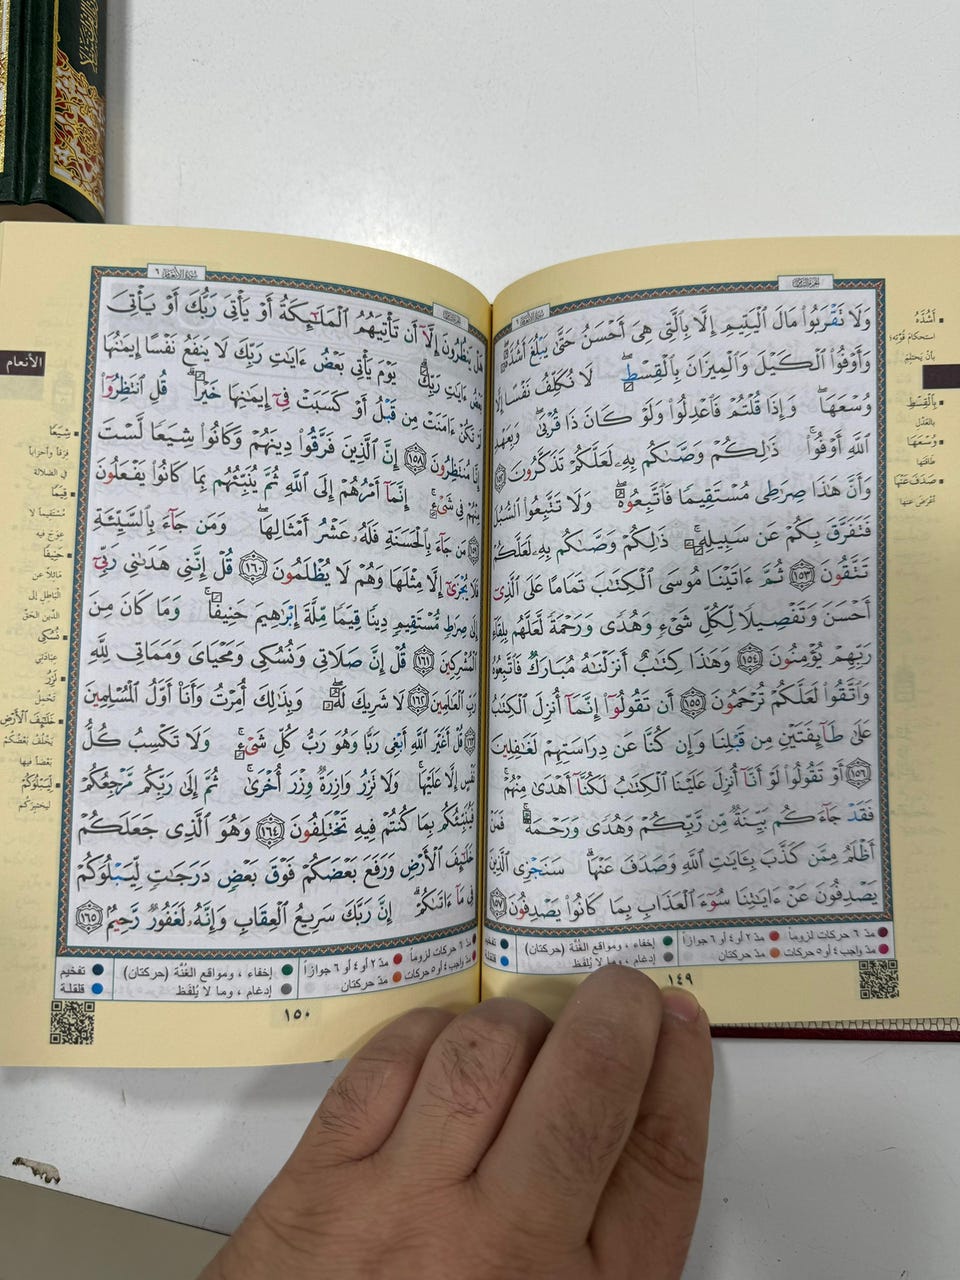 الجزء الثامن
سورة الأنعام ٦
وَلَا تَقْرَبُوا۟ مَالَ ٱلْيَتِيمِ إِلَّا بِٱلَّتِى هِىَ أَحْسَنُ حَتَّىٰ يَبْلُغَ أَشُدَّهُۥ
وَأَوْفُوا۟ ٱلْكَيْلَ وَٱلْمِيزَانَ بِٱلْقِسْطِ ۖ لَا نُكَلِّفُ نَفْسًا إِلَّا
وُسْعَهَا ۖ وَإِذَا قُلْتُمْ فَٱعْدِلُوا۟ وَلَوْ كَانَ ذَا قُرْبَىٰ ۖ وَبِعَهْدِ
ٱللَّهِ أَوْفُوا۟ ۚ ذَٰلِكُمْ وَصَّىٰكُم بِهِۦ لَعَلَّكُمْ تَذَكَّرُونَ ١٥٢
وَأَنَّ هَٰذَا صِرَٰطِى مُسْتَقِيمًا فَٱتَّبِعُوهُ ۖ وَلَا تَتَّبِعُوا۟ ٱلسُّبُلَ
فَتَفَرَّقَ بِكُمْ عَن سَبِيلِهِۦ ۚ ذَٰلِكُمْ وَصَّىٰكُم بِهِۦ لَعَلَّكُمْ
تَتَّقُونَ ١٥٣ ثُمَّ ءَاتَيْنَا مُوسَى ٱلْكِتَٰبَ تَمَامًا عَلَى ٱلَّذِىٓ
أَحْسَنَ وَتَفْصِيلًا لِّكُلِّ شَىْءٍ وَهُدًى وَرَحْمَةً لَّعَلَّهُم بِلِقَآءِ
رَبِّهِمْ يُؤْمِنُونَ ١٥٤ وَهَٰذَا كِتَٰبٌ أَنزَلْنَٰهُ مُبَارَكٌ فَٱتَّبِعُوهُ
وَٱتَّقُوا۟ لَعَلَّكُمْ تُرْحَمُونَ ١٥٥ أَن تَقُولُوٓا۟ إِنَّمَآ أُنزِلَ ٱلْكِتَٰبُ
عَلَىٰ طَآئِفَتَيْنِ مِن قَبْلِنَا وَإِن كُنَّا عَن دِرَاسَتِهِمْ لَغَٰفِلِينَ
١٥٦ أَوْ تَقُولُوا۟ لَوْ أَنَّآ أُنزِلَ عَلَيْنَا ٱلْكِتَٰبُ لَكُنَّآ أَهْدَىٰ مِنْهُمْ ۚ
فَقَدْ جَآءَكُم بَيِّنَةٌ مِّن رَّبِّكُمْ وَهُدًى وَرَحْمَةٌ ۚ فَمَنْ
أَظْلَمُ مِمَّن كَذَّبَ بِـَٔايَٰتِ ٱللَّهِ وَصَدَفَ عَنْهَا ۗ سَنَجْزِى ٱلَّذِينَ
يَصْدِفُونَ عَنْ ءَايَٰتِنَا سُوٓءَ ٱلْعَذَابِ بِمَا كَانُوا۟ يَصْدِفُونَ ١٥٧
أَشُدَّهُ
استحكام قوّته؛
بأن يحتلِم
بِٱلْقِسْطِ
بالعَدْل
وُسْعَهَا
طاقتها
صَدَفَ عَنْهَا
أعْرَضَ عنها
مدّ ٦ حركات لزوماً
مدّ ٢ أو ٤ أو ٦ جوازاً
إخفاء، ومواقع الغُنَّة (حركتان)
تفخيم
مدّ واجب ٤ أو ٥ حركات
مدّ حركتان
إدغام، وما لا يُلفَظ
قلقلة
١٤٩
سورة الأنعام ٦
الجزء الثامن
هَلْ يَنظُرُونَ إِلَّآ أَن تَأْتِيَهُمُ ٱلْمَلَٰٓئِكَةُ أَوْ يَأْتِىَ رَبُّكَ أَوْ يَأْتِىَ
بَعْضُ ءَايَٰتِ رَبِّكَ ۗ يَوْمَ يَأْتِى بَعْضُ ءَايَٰتِ رَبِّكَ لَا يَنفَعُ نَفْسًا إِيمَٰنُهَا
لَمْ تَكُنْ ءَامَنَتْ مِن قَبْلُ أَوْ كَسَبَتْ فِىٓ إِيمَٰنِهَا خَيْرًا ۗ قُلِ ٱنتَظِرُوٓا۟
إِنَّا مُنتَظِرُونَ ١٥٨ إِنَّ ٱلَّذِينَ فَرَّقُوا۟ دِينَهُمْ وَكَانُوا۟ شِيَعًا لَّسْتَ
مِنْهُمْ فِى شَىْءٍ ۚ إِنَّمَآ أَمْرُهُمْ إِلَى ٱللَّهِ ثُمَّ يُنَبِّئُهُم بِمَا كَانُوا۟ يَفْعَلُونَ
١٥٩ مَن جَآءَ بِٱلْحَسَنَةِ فَلَهُۥ عَشْرُ أَمْثَالِهَا ۖ وَمَن جَآءَ بِٱلسَّيِّئَةِ
فَلَا يُجْزَىٰٓ إِلَّا مِثْلَهَا وَهُمْ لَا يُظْلَمُونَ ١٦٠ قُلْ إِنَّنِى هَدَىٰنِى رَبِّىٓ
إِلَىٰ صِرَٰطٍ مُّسْتَقِيمٍ دِينًا قِيَمًا مِّلَّةَ إِبْرَٰهِيمَ حَنِيفًا ۚ وَمَا كَانَ مِنَ
ٱلْمُشْرِكِينَ ١٦١ قُلْ إِنَّ صَلَاتِى وَنُسُكِى وَمَحْيَاىَ وَمَمَاتِى لِلَّهِ
رَبِّ ٱلْعَٰلَمِينَ ١٦٢ لَا شَرِيكَ لَهُۥ ۖ وَبِذَٰلِكَ أُمِرْتُ وَأَنَا۠ أَوَّلُ ٱلْمُسْلِمِينَ
١٦٣ قُلْ أَغَيْرَ ٱللَّهِ أَبْغِى رَبًّا وَهُوَ رَبُّ كُلِّ شَىْءٍ ۚ وَلَا تَكْسِبُ كُلُّ
نَفْسٍ إِلَّا عَلَيْهَا ۚ وَلَا تَزِرُ وَازِرَةٌ وِزْرَ أُخْرَىٰ ۚ ثُمَّ إِلَىٰ رَبِّكُم مَّرْجِعُكُمْ
فَيُنَبِّئُكُم بِمَا كُنتُمْ فِيهِ تَخْتَلِفُونَ ١٦٤ وَهُوَ ٱلَّذِى جَعَلَكُمْ
خَلَٰٓئِفَ ٱلْأَرْضِ وَرَفَعَ بَعْضَكُمْ فَوْقَ بَعْضٍ دَرَجَٰتٍ لِّيَبْلُوَكُمْ
فِى مَآ ءَاتَىٰكُمْ ۗ إِنَّ رَبَّكَ سَرِيعُ ٱلْعِقَابِ وَإِنَّهُۥ لَغَفُورٌ رَّحِيمٌۢ ١٦٥
الأنعام
شِيَعًا
فِرَقاً وأحزاباً
في الضلالة
قِيَمًا
مُستقيماً لا
عِوَجَ فيه
حَنِيفًا
مائلاً عن
الباطل إلى
الدّين الحَقّ
نُسُكِى
عبادتي
تَزِرُ
تَحْمِلُ
خَلَٰٓئِفَ ٱلْأَرْضِ
يَخْلُفُ بَعْضُكُمْ
بَعْضاً فيها
لِّيَبْلُوَكُمْ
ليختبركم
مدّ ٦ حركات لزوماً
مدّ ٢ أو ٤ أو ٦ جوازاً
إخفاء، ومواقع الغُنَّة (حركتان)
تفخيم
مدّ واجب ٤ أو ٥ حركات
مدّ حركتان
إدغام، وما لا يُلفَظ
قلقلة
١٥٠